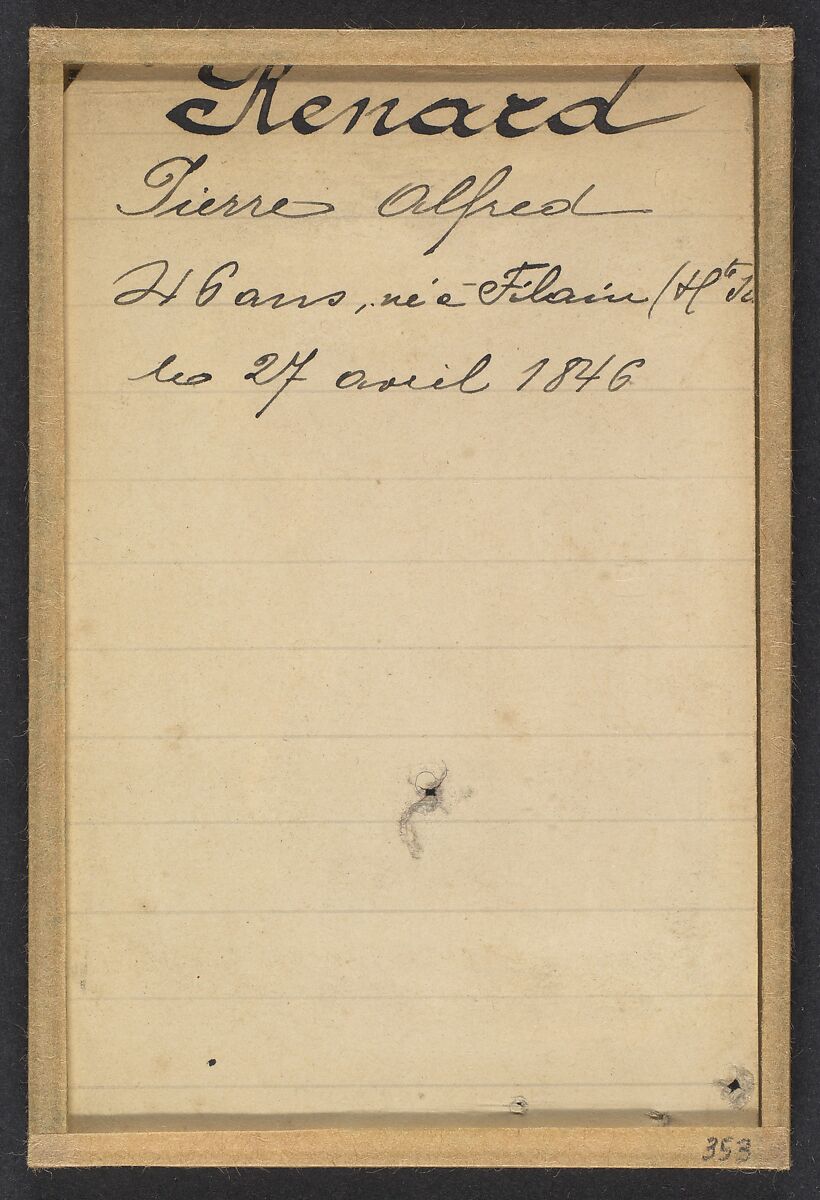 Renard
Pierre Alfred
46 ans, né à Filain (Hte
le 27 avril 1846
353